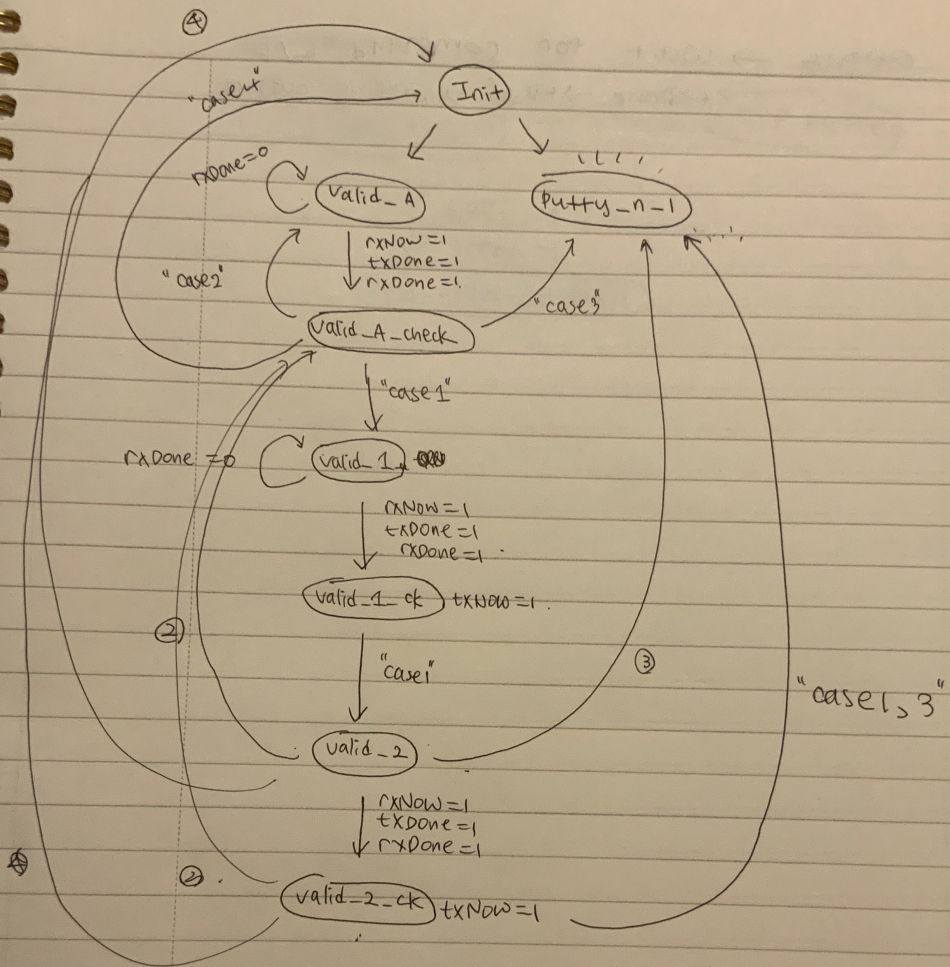 ④
Init
"case4"
rxDone=0
valid_A
putty_n_1
rxNow=1
txDone=1
rxDone=1.
"case2"
"case3"
valid_A_check
"case1"
rxDone=0
valid_1
rxNow=1
txDone=1
rxDone=1.
valid_1_ck
txNow=1.
②
"case1"
③
"case1,3"
valid_2
rxNow=1
txDone=1
rxDone=1
②
valid_2_ck
txNow=1